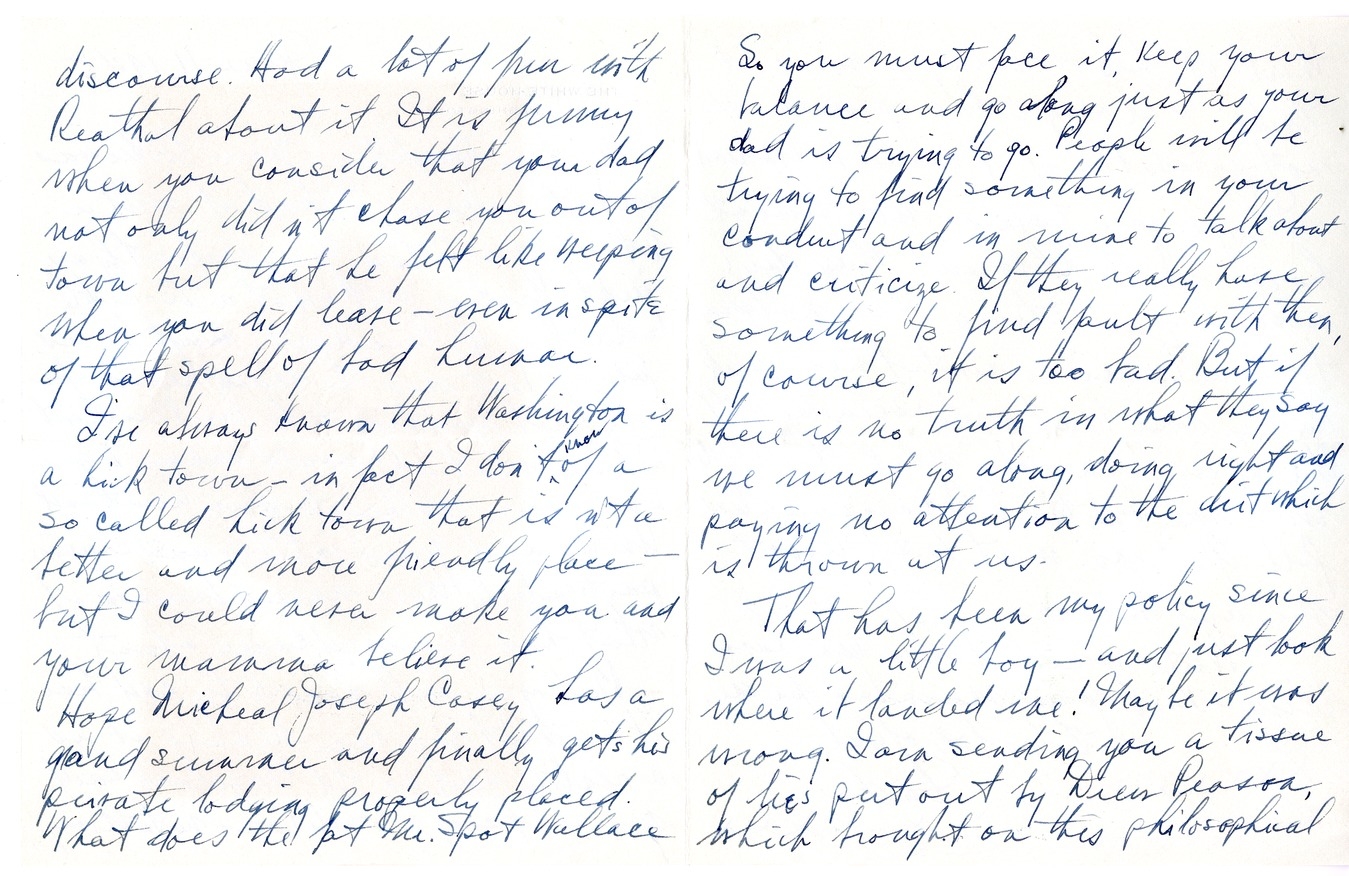 discourse. Had a lot of fun with
Reathal about it. It is funny
when you consider that your dad
not only did n't chase you out of
town but that he felt like weeping
when you did leave – even in spite
of that spell of bad humor.
I've always known that Washington is
a hick town – in fact I don't know of a
so called hick town that is n't a
better and more friendly place –
but I could never make you and
your mamma believe it.
Hope Micheal Joseph Casey has a
grand summer and finally gets his
private lodging properly placed.
What does the fat Mr. Spot Wallace
So you must face it, keep your
balance and go along just as your
dad is trying to go. People will be
trying to find something in your
conduct and in mine to talk about
and criticize. If they really have
something to find fault with then,
of course, it is too bad. But if
there is no truth in what they say
we must go along, doing right and
paying no attention to the dirt which
is thrown at us.
That has been my policy since
I was a little boy – and just look
where it landed me! Maybe it was
wrong. I am sending you a tissue
of lies put out by Drew Pearson,
which brought on this philosophical